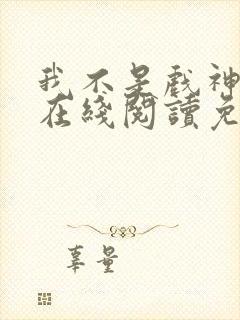 我不是戲神
在綫閱讀免
辜量